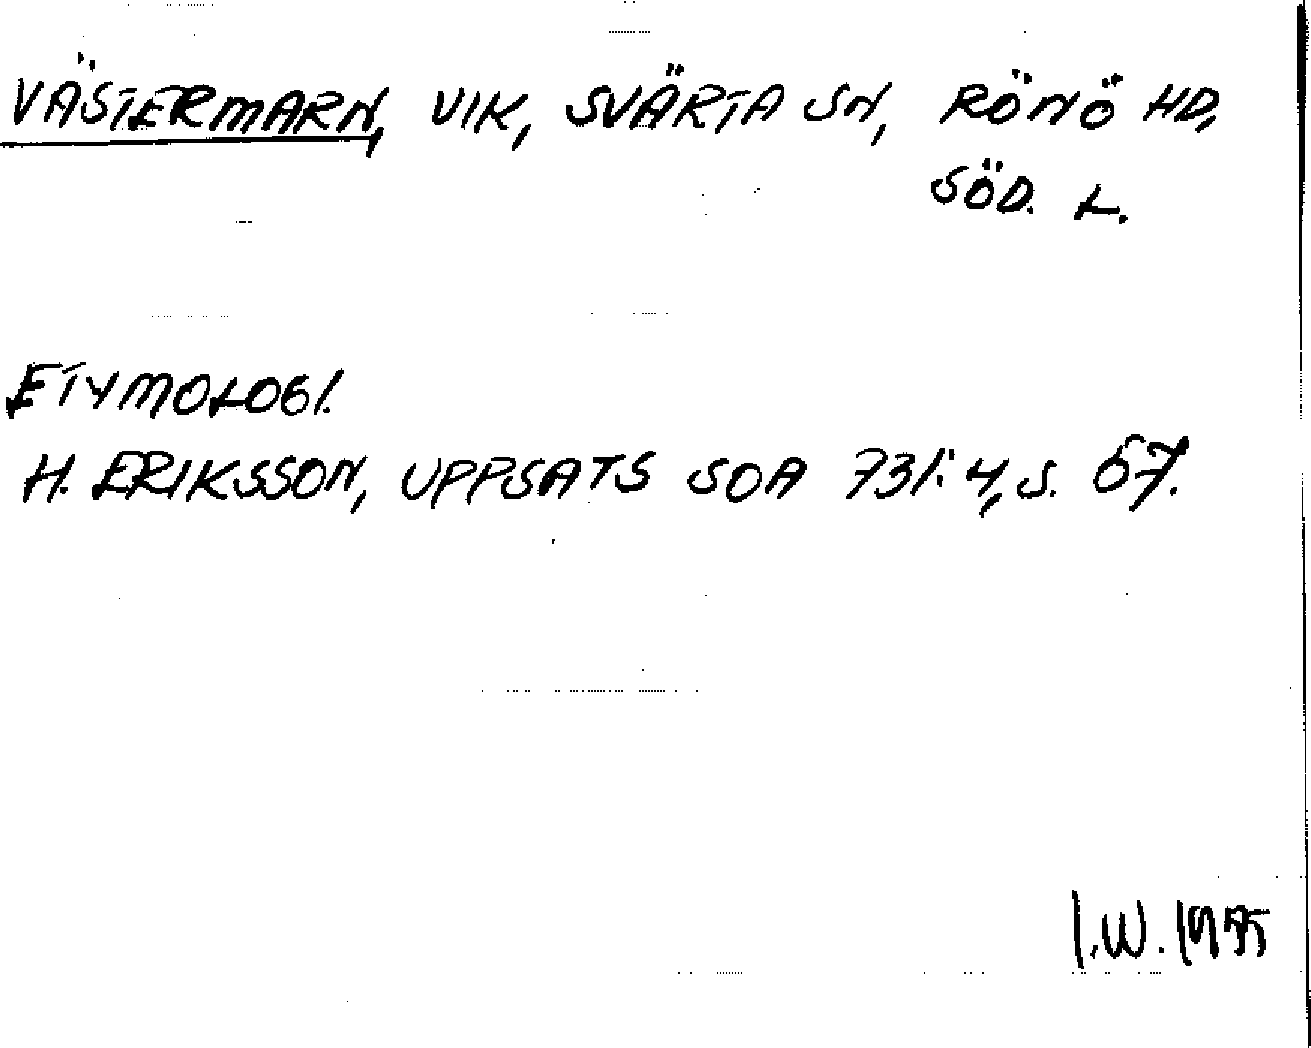 VÄSTERMARN, VIK, SVÄRTA SN, RÖNÖ HD,
SÖD. L.
ETYMOLOGI.
H. ERIKSSON, UPPSATS SOA 731:4, S. 57.
I.W.